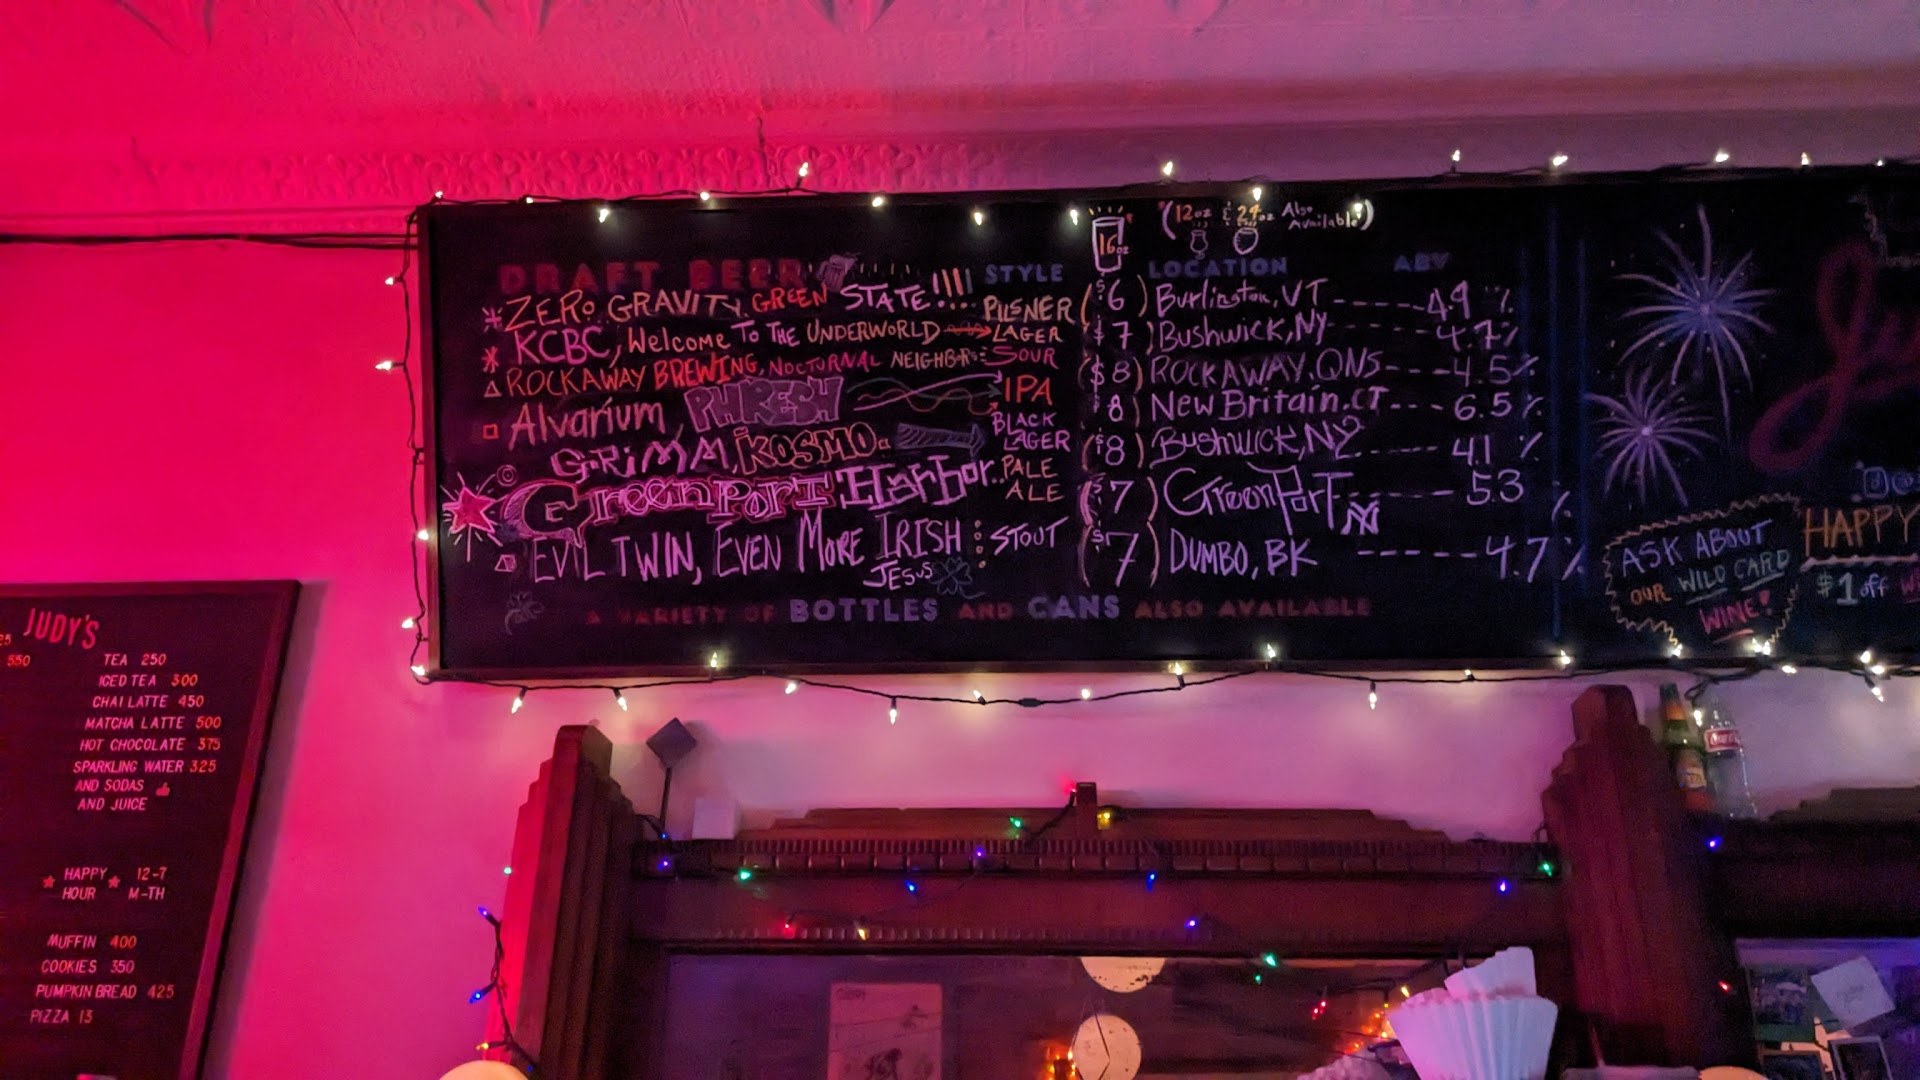 16oz
(12oz & 24oz Also Available)
DRAFT BEER STYLE LOCATION ABV
ZERO GRAVITY, GREEN STATE!!!! PILSNER ($6) Burlington, VT ------ 4.9 %
KCBC, Welcome To THE UNDERWORLD LAGER $7) Bushwick, NY ------ 4.7%
ROCKAWAY BREWING, NOCTURNAL NEIGHBOR SOUR ($8) ROCKAWAY, QNS --- 4.5%
Alvarium, PHRESH IPA 8) New Britain, CT --- 6.5%
GRIMM, KOSMO BLACK LAGER ($8) Bushwick, NY ----- 4.1 %
GreenPort Harbor.. PALE ALE ($7) GreenPort, NY ----- 5.3 %
EVIL TWIN, EVEN MORE IRISH JESUS : STOUT ($7) DUMBO, BK ------ 4.7%
A VARIETY OF BOTTLES AND CANS ALSO AVAILABLE
ASK ABOUT
OUR WILD CARD
WINE!
HAPPY
$1 off
JUDY'S
550
TEA 250
ICED TEA 300
CHAI LATTE 450
MATCHA LATTE 500
HOT CHOCOLATE 375
SPARKLING WATER 325
AND SODAS
AND JUICE
HAPPY 12-7
HOUR M-TH
MUFFIN 400
COOKIES 350
PUMPKIN BREAD 425
PIZZA 13